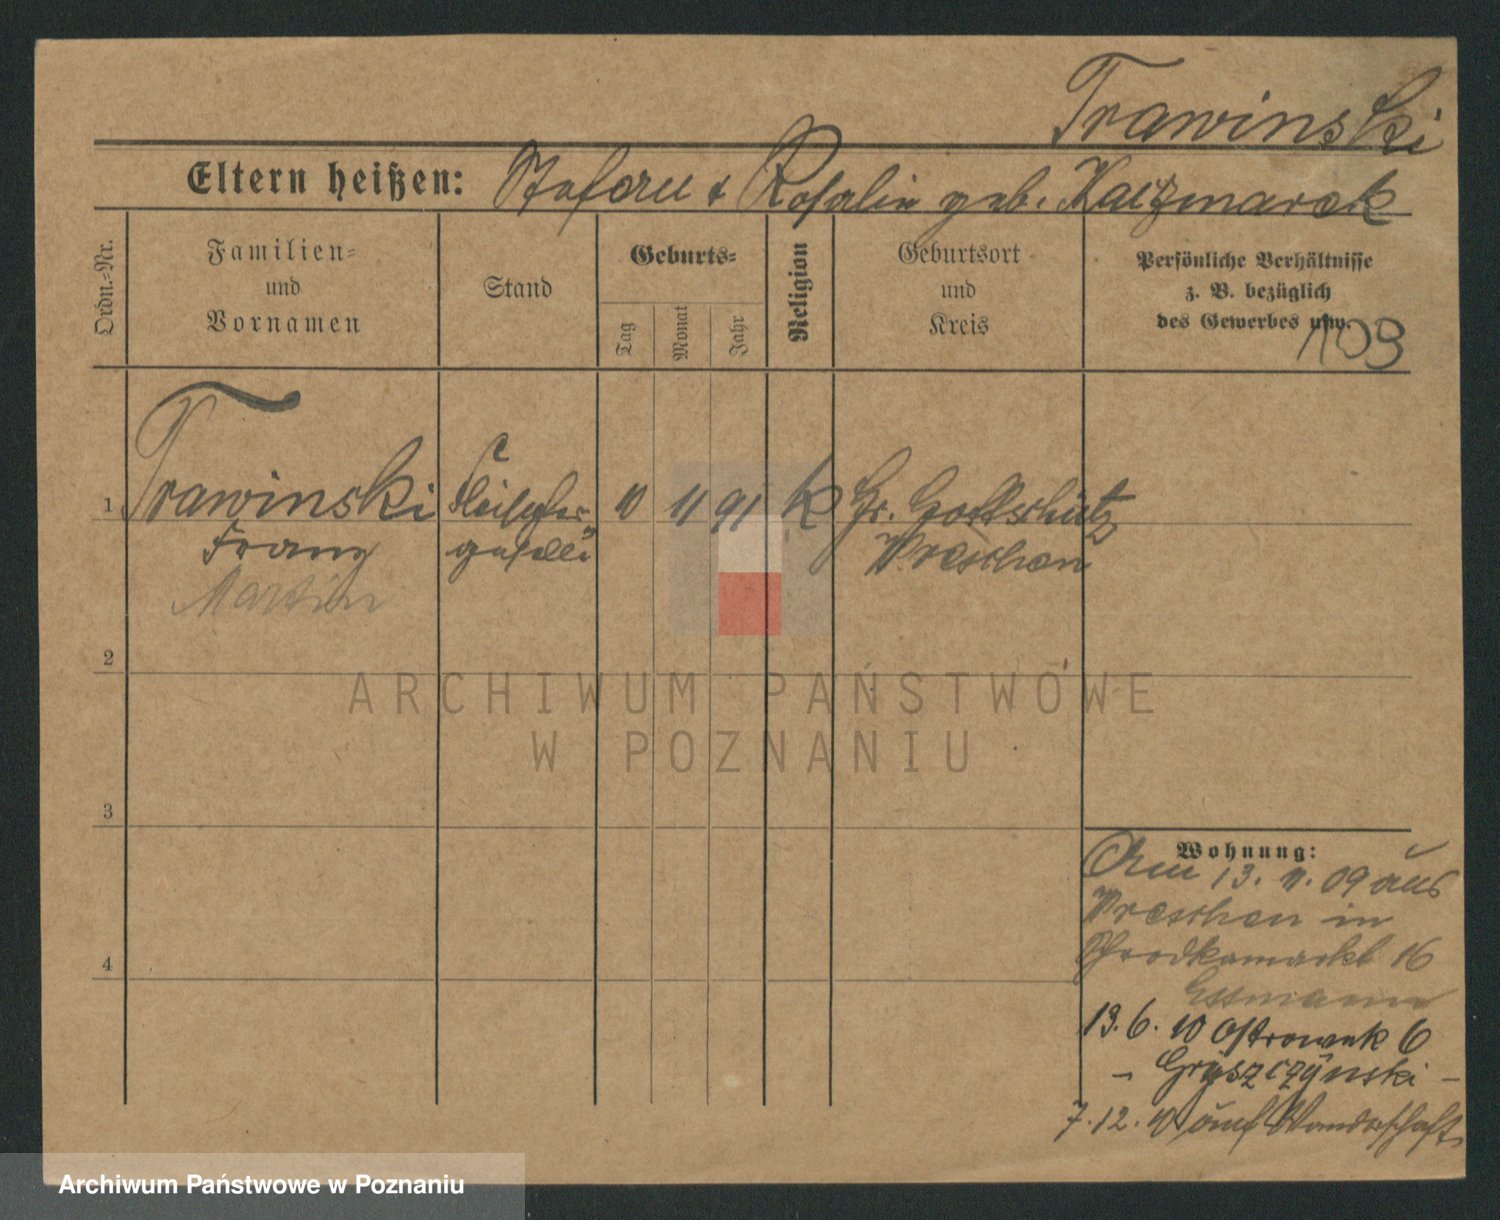 Trawinski
Eltern heißen: Stefan u Rosalie geb. Kaczmarek
Ordn.-Nr.
Familien-
und
Vornamen
Stand
Geburts-
Tag
Monat
Jahr
Religion
Geburtsort
und
Kreis
Persönliche Verhältnisse
z. B. bezüglich
des Gewerbes usw.
109
1
Trawinski
Franz
Martin
Fleischer-
geselle
10
11
91
k
Gr. Gottschütz
Wreschen
2
3
4
Wohnung:
Am 13. 11. 09 aus
Wreschen in
Schrodkamarkt 16
Essmann
13. 6. 10 Ostrowek 6
- Gryszczynski -
7. 12. 10 auf Wanderschaft
ARCHIWUM PAŃSTWOWE
W POZNANIU
Archiwum Państwowe w Poznaniu